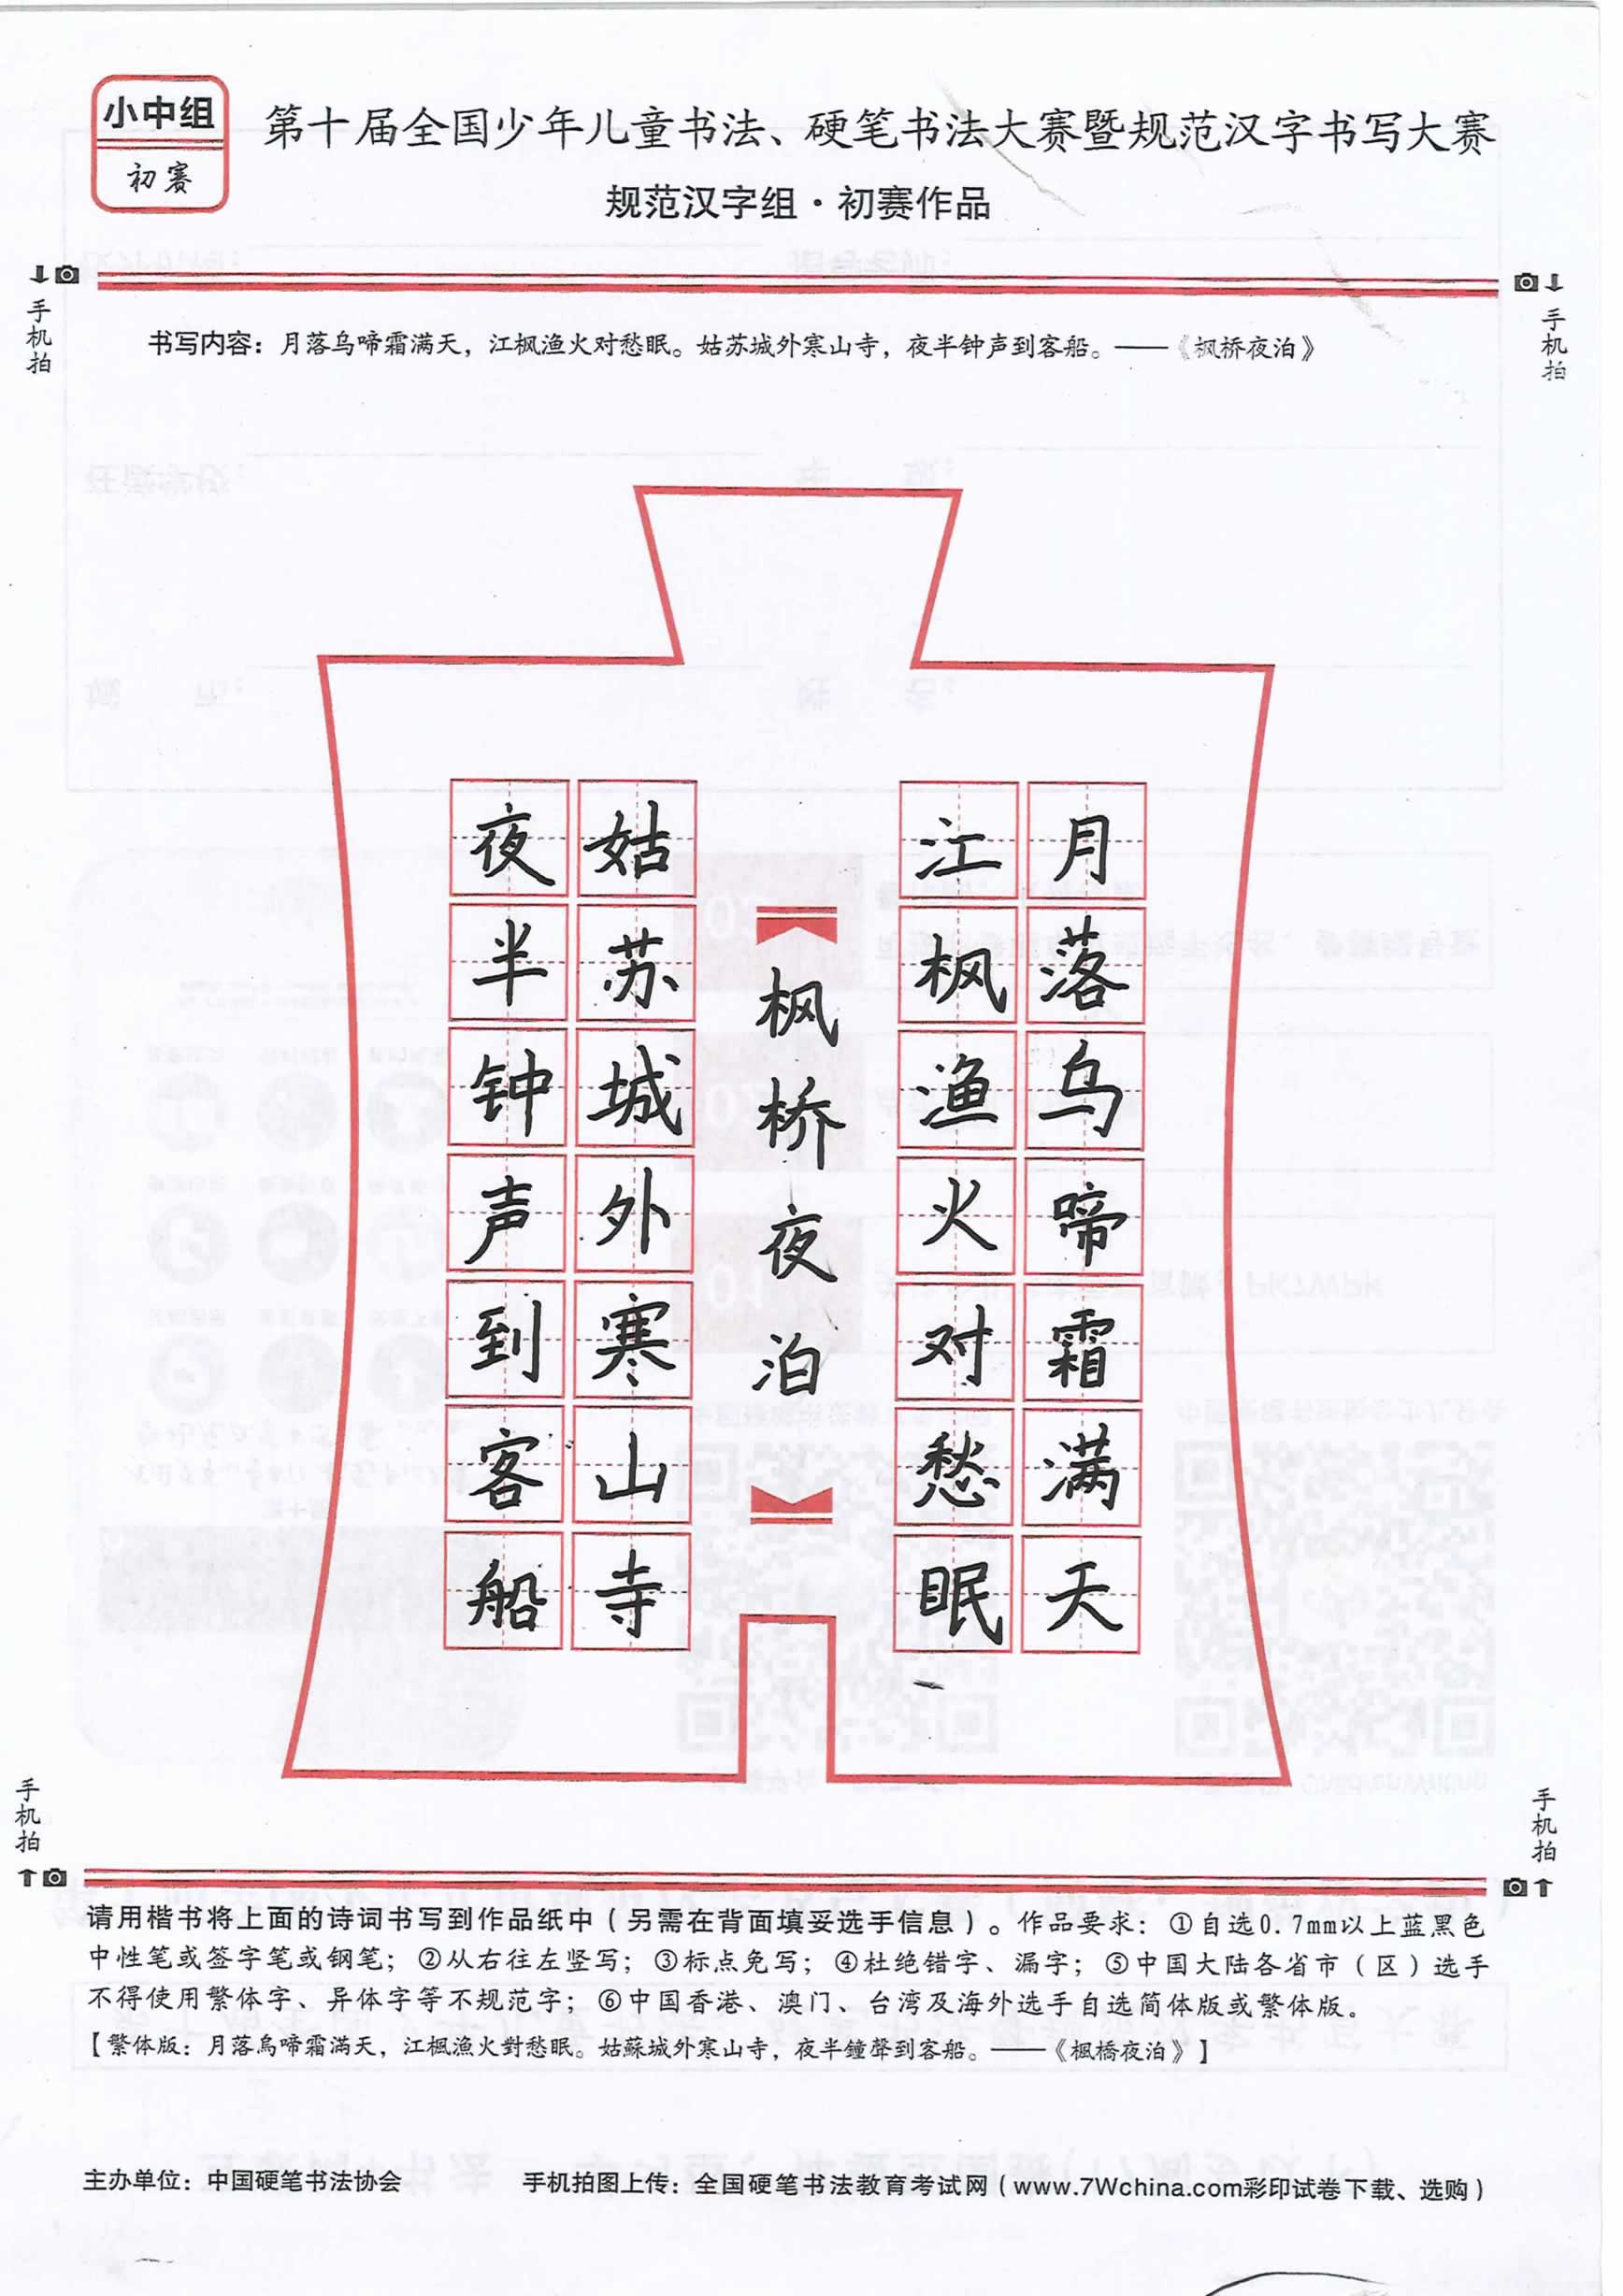 小中组
初赛
第十届全国少年儿童书法、硬笔书法大赛暨规范汉字书写大赛
规范汉字组·初赛作品
手机拍
手机拍
书写内容：月落乌啼霜满天，江枫渔火对愁眠。姑苏城外寒山寺，夜半钟声到客船。——《枫桥夜泊》
月落乌啼霜满天
江枫渔火对愁眠
枫桥夜泊
姑苏城外寒山寺
夜半钟声到客船
手机拍
手机拍
请用楷书将上面的诗词书写到作品纸中（另需在背面填妥选手信息）。作品要求：①自选0.7mm以上蓝黑色
中性笔或签字笔或钢笔；②从右往左竖写；③标点免写；④杜绝错字、漏字；⑤中国大陆各省市（区）选手
不得使用繁体字、异体字等不规范字；⑥中国香港、澳门、台湾及海外选手自选简体版或繁体版。
【繁体版：月落烏啼霜滿天，江楓漁火對愁眠。姑蘇城外寒山寺，夜半鐘聲到客船。——《楓橋夜泊》】
主办单位：中国硬笔书法协会 手机拍图上传：全国硬笔书法教育考试网（www.7Wchina.com彩印试卷下载、选购）